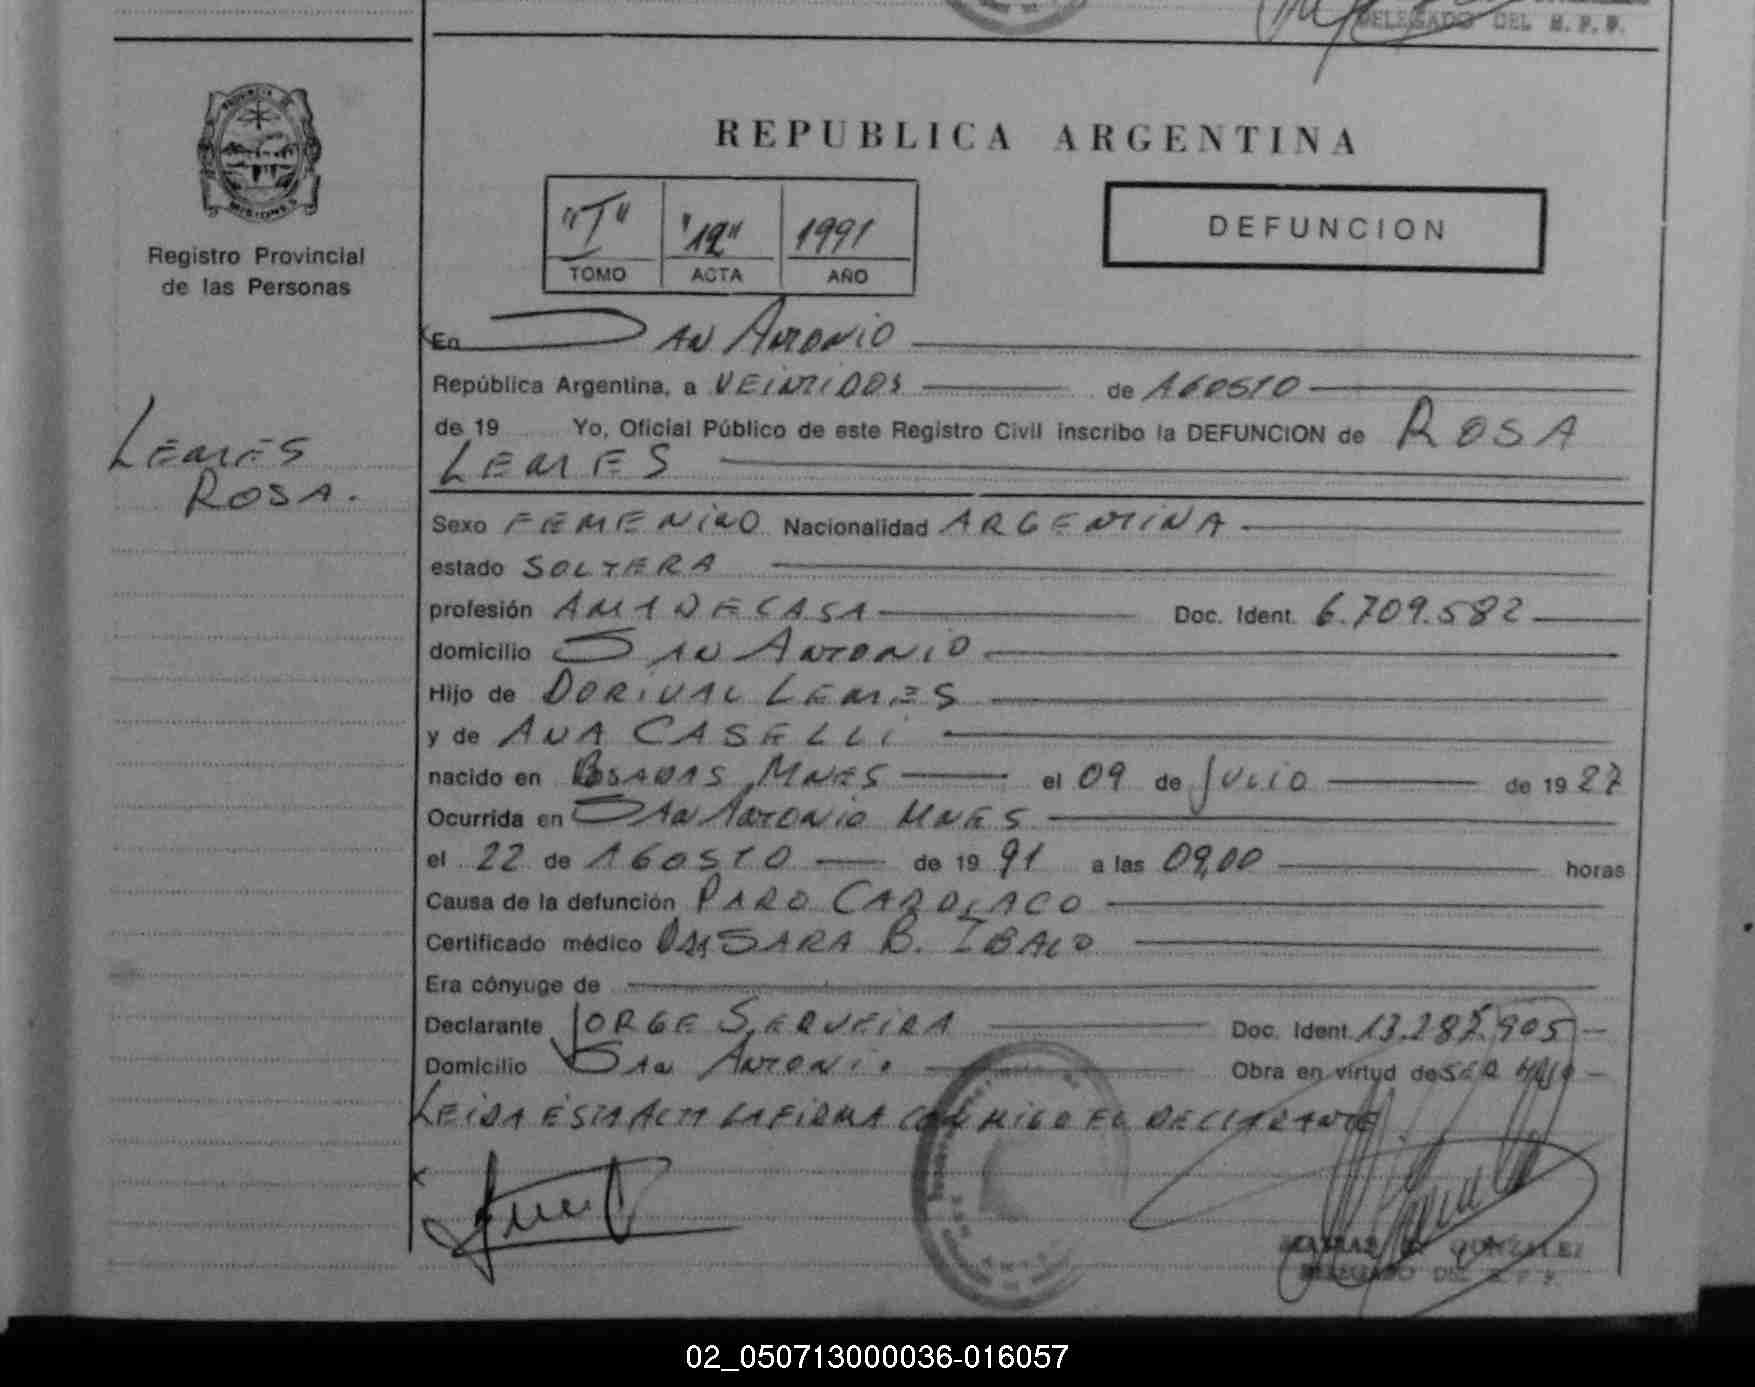 DELEGADO DEL R. P. P.
PROVINCIA DE
MISIONES
Registro Provincial
de las Personas
LEMES
ROSA.
REPUBLICA ARGENTINA
"I" "12" 1991
TOMO ACTA AÑO
DEFUNCION
En SAN ANTONIO
República Argentina, a VEINTIDOS de AGOSTO
de 19 Yo, Oficial Público de este Registro Civil inscribo la DEFUNCION de ROSA
LEMES
Sexo FEMENINO Nacionalidad ARGENTINA
estado SOLTERA
profesión AMA DE CASA Doc. Ident. 6.709.582
domicilio SAN ANTONIO
Hijo de DORIVAL LEMES
y de ANA CASELLI
nacido en POSADAS MNES el 09 de JULIO de 19 27
Ocurrida en SAN ANTONIO MNES
el 22 de AGOSTO de 19 91 a las 09,00 horas
Causa de la defunción PARO CARDIACO
Certificado médico SARA B. IBALO
Era cónyuge de
Declarante JORGE SERVEIRA Doc. Ident. 13.287.905
Domicilio SAN ANTONIO Obra en virtud de SER HIJO
LEIDA ESTA ACTA LA FIRMA CONMIGO EL DECLARANTE
GONZALEZ
DELEGADO DEL R. P. P.
02_050713000036-016057